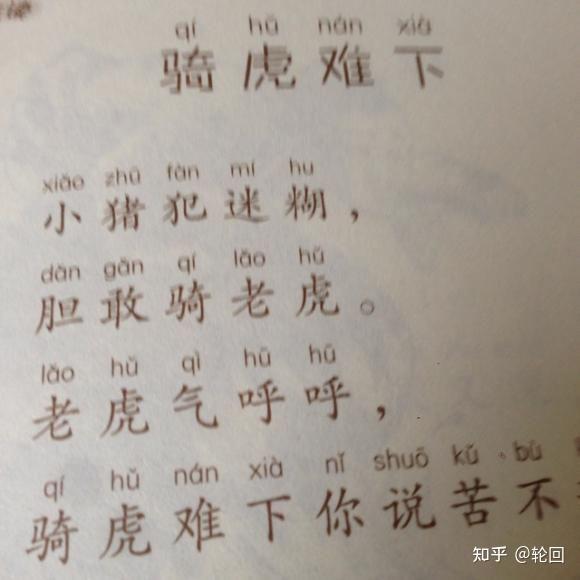 qí hǔ nán xià
骑虎难下
xiǎo zhū fàn mí hu
小猪犯迷糊，
dǎn gǎn qí lǎo hǔ
胆敢骑老虎。
lǎo hǔ qì hū hū
老虎气呼呼，
qí hǔ nán xià nǐ shuō kǔ bù
骑虎难下你说苦不
知乎 @轮回